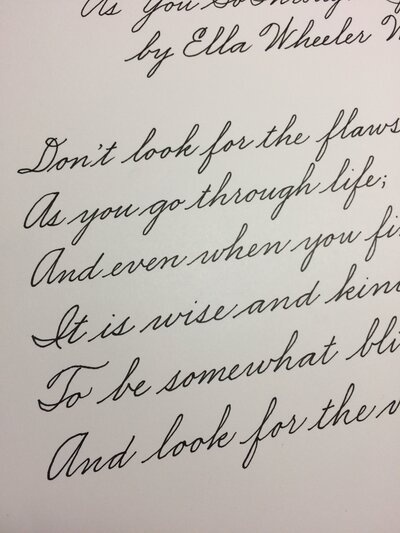 As You Go Through
by Ella Wheeler
Don't look for the flaws
As you go through life;
And even when you
It is wise and
To be somewhat
And look for the